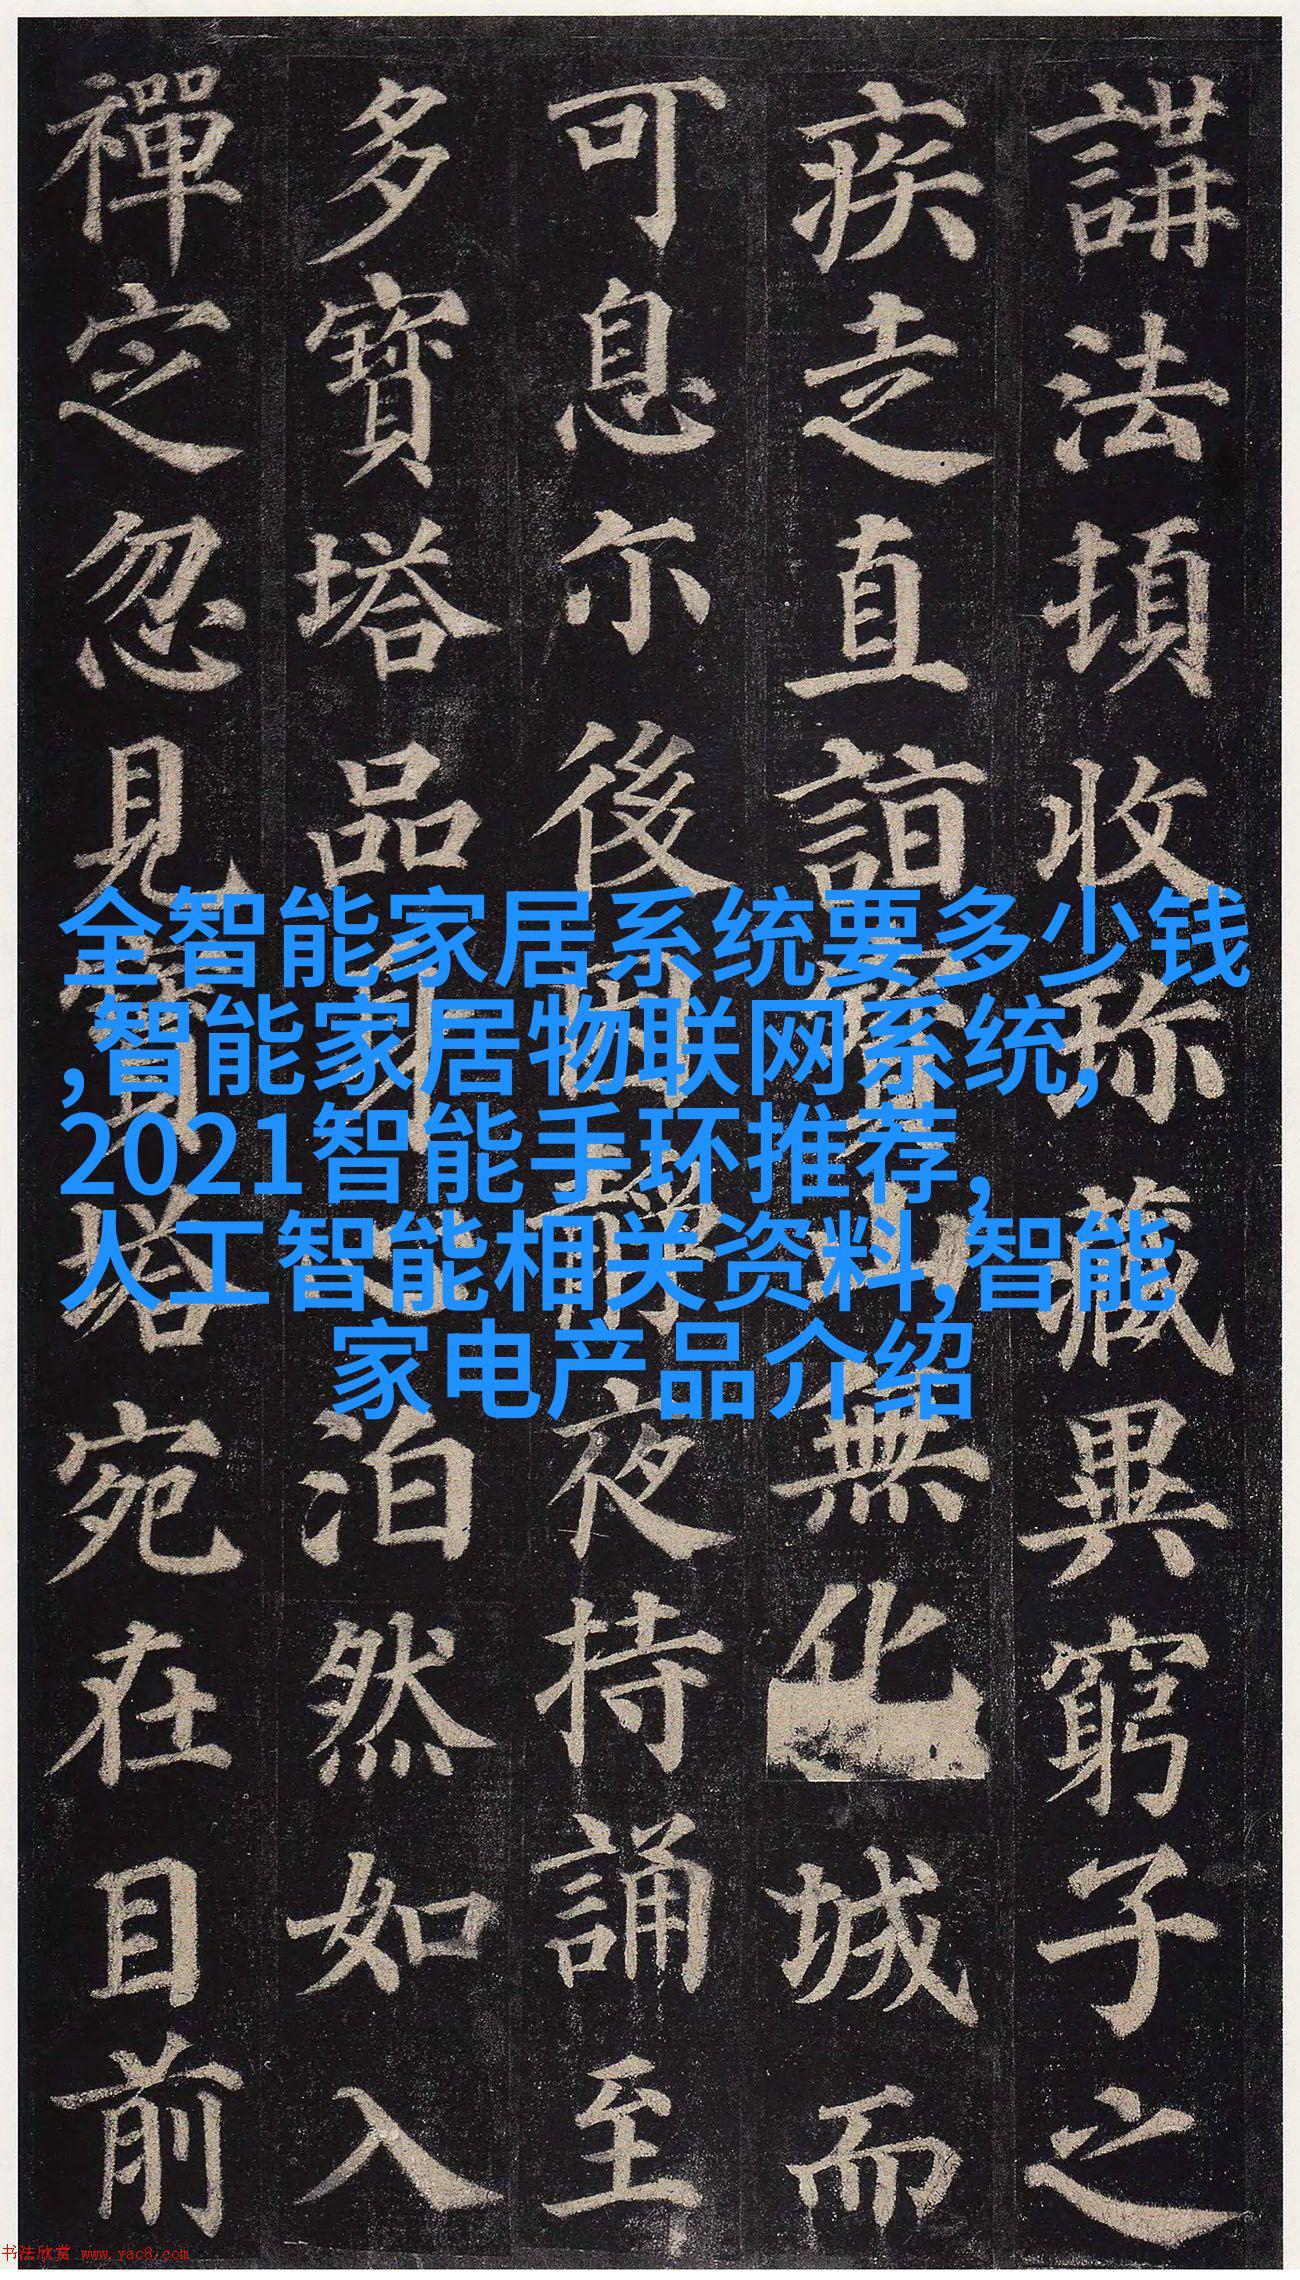 講法頓收珎藏異窮子之
疾走直詣寶山無化城而
可息尒後因靜夜持誦至
多寶塔品身心泊然如入
禪定忽見寶塔宛在目前
全智能家居系统要多少钱
,智能家居物联网系统,
2021智能手环推荐,
人工智能相关资料,智能
家电产品介绍
书法欣赏 www.yac8.com